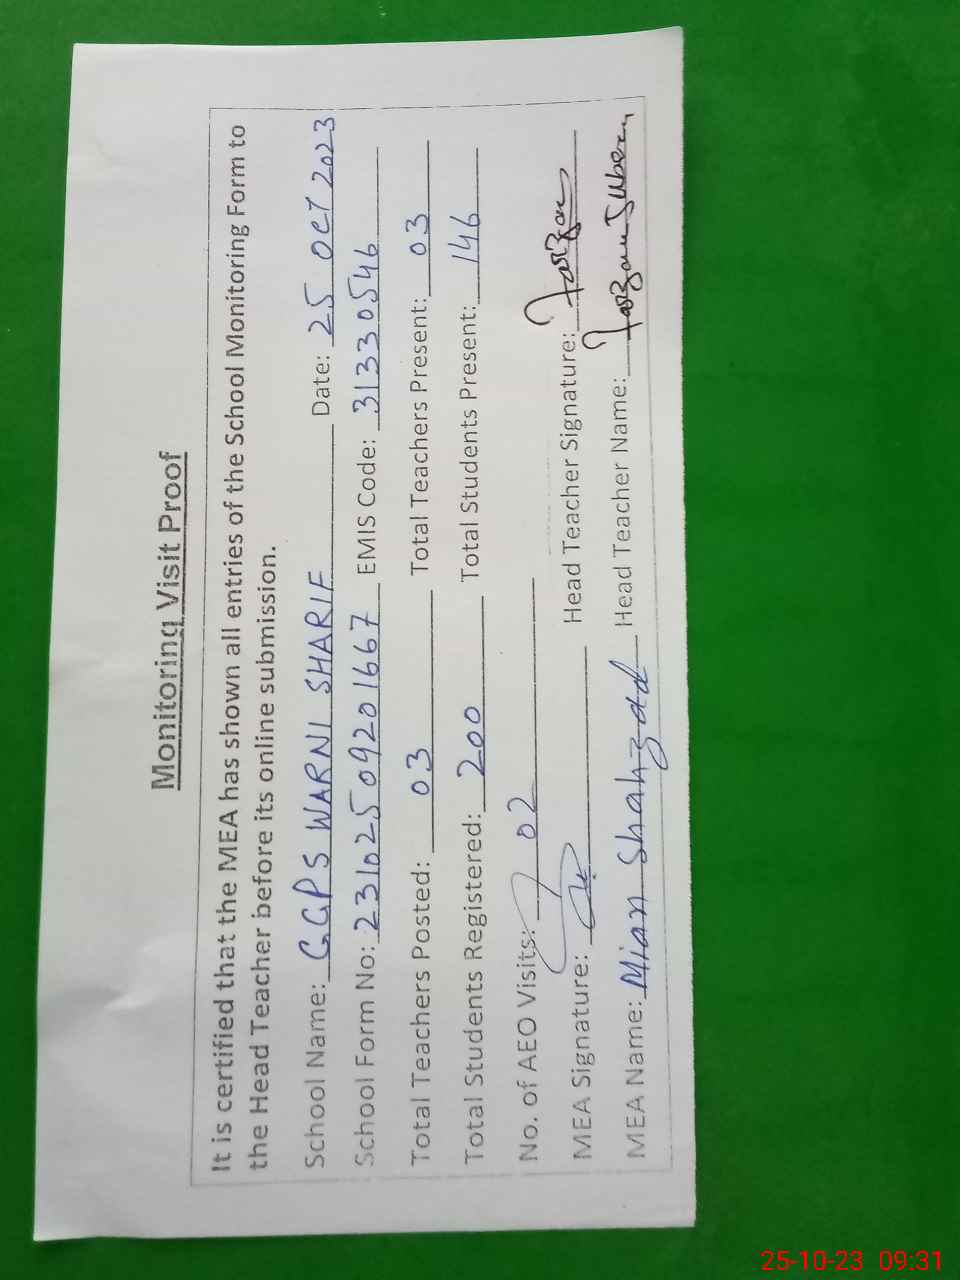 Monitoring Visit Proof
It is certified that the MEA has shown all entries of the School Monitoring Form to
the Head Teacher before its online submission.
School Name: GGPS WARNI SHARIF Date: 25 OCT 2023
School Form No: 23102509201667 EMIS Code: 31330546
Total Teachers Posted: 03 Total Teachers Present: 03
Total Students Registered: 200 Total Students Present: 146
No. of AEO Visits: 02
MEA Signature: Head Teacher Signature:
MEA Name: Mian Shahzad Head Teacher Name:
25-10-23 09:31